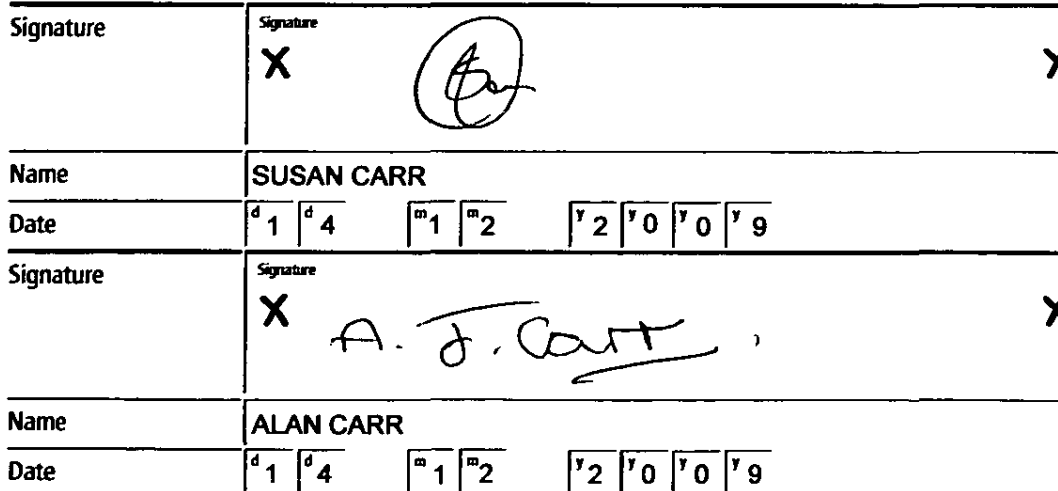 Signature
Signature
X X
Name SUSAN CARR
Date d 1 d 4 m 1 m 2 y 2 y 0 y 0 y 9
Signature
Signature
X A. J. Carr X
Name ALAN CARR
Date d 1 d 4 m 1 m 2 y 2 y 0 y 0 y 9